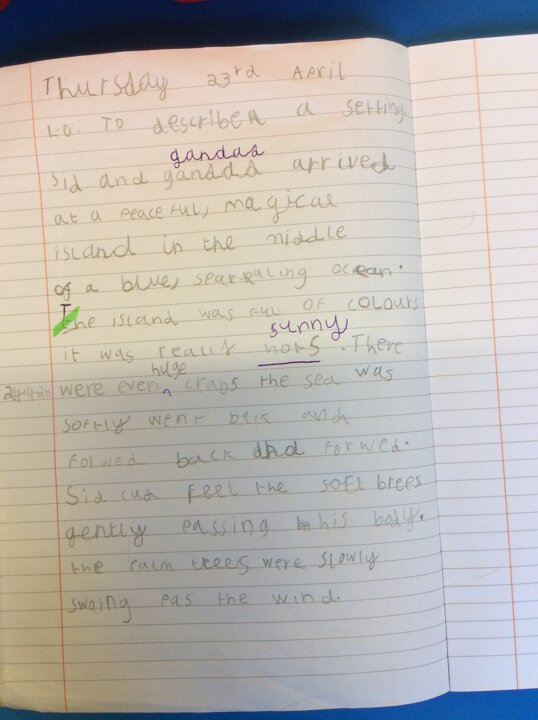 Thursday 23rd April
L.O: TO describe a setting
gandas
Sid and gansda arrived
at a peaceful, magical
island in the middle
of a blue, sparealing ocean.
The island was full OF colours
sunny
it was really hors. There
huge
24.4.26 were even ^ crabs the sea was
softly went back and
forwed back and forwed.
Sid cud feel the soft brees
gently passing his body.
the palm trees were slowly
swaing pas the wind.